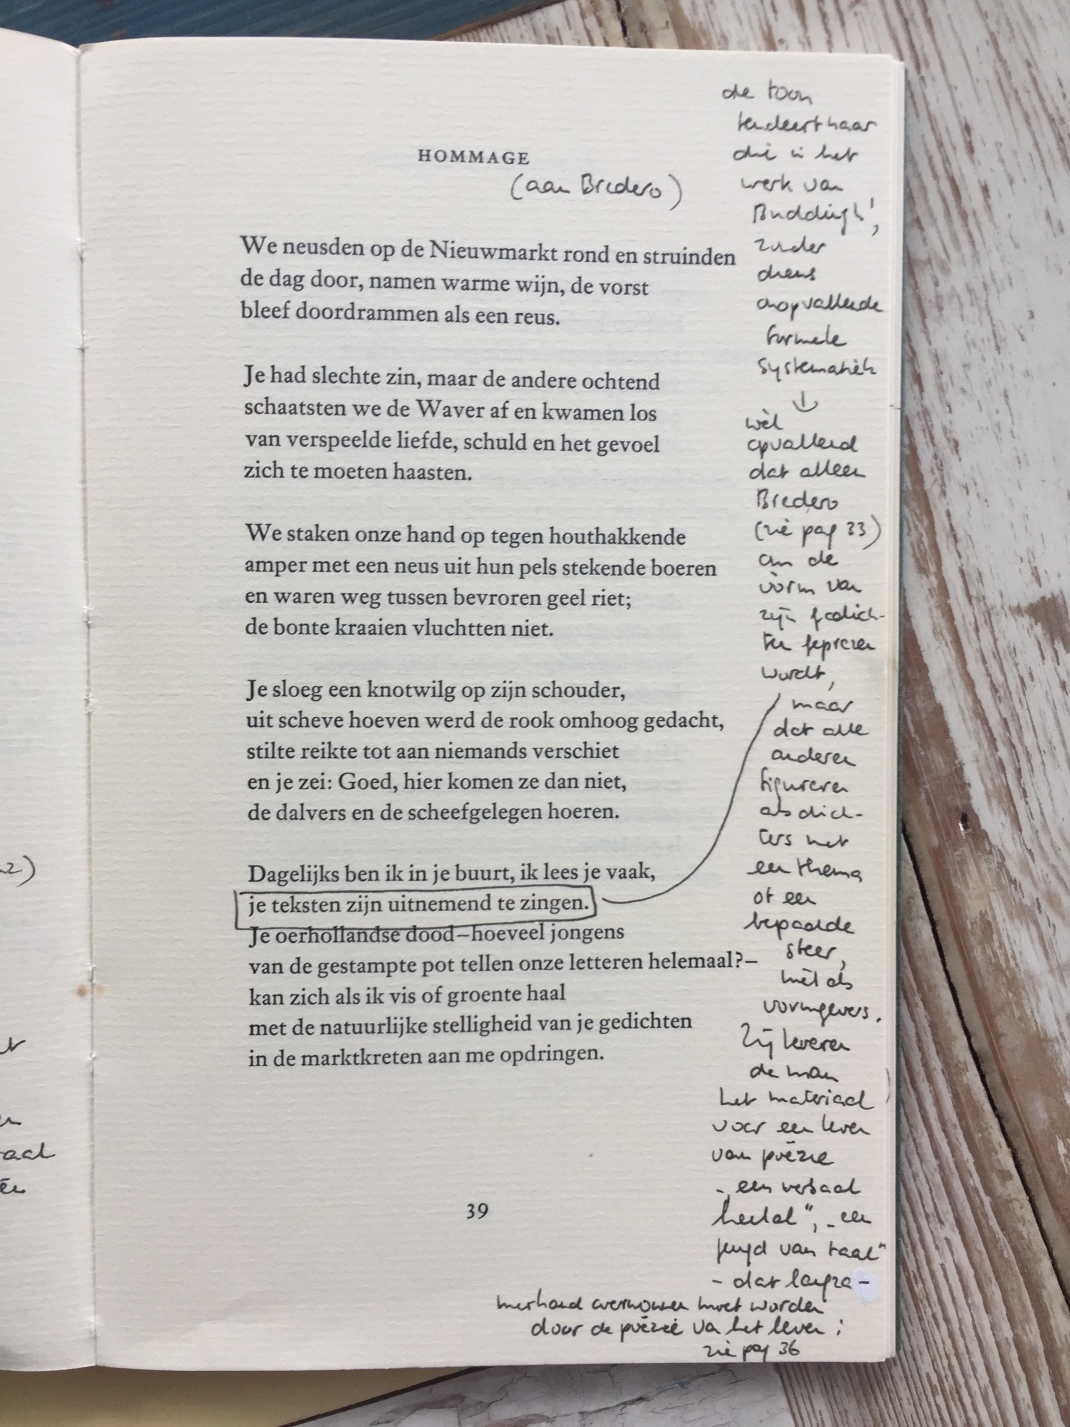 HOMMAGE
(aan Bredero)
We neusden op de Nieuwmarkt rond en struinden
de dag door, namen warme wijn, de vorst
bleef doordrammen als een reus.
Je had slechte zin, maar de andere ochtend
schaatsten we de Waver af en kwamen los
van verspeelde liefde, schuld en het gevoel
zich te moeten haasten.
We staken onze hand op tegen houthakkende
amper met een neus uit hun pels stekende boeren
en waren weg tussen bevroren geel riet;
de bonte kraaien vluchtten niet.
Je sloeg een knotwilg op zijn schouder,
uit scheve hoeven werd de rook omhoog gedacht,
stilte reikte tot aan niemands verschiet
en je zei: Goed, hier komen ze dan niet,
de dalvers en de scheefgelegen hoeren.
Dagelijks ben ik in je buurt, ik lees je vaak,
je teksten zijn uitnemend te zingen.
Je oerhollandse dood—hoeveel jongens
van de gestampte pot tellen onze letteren helemaal?—
kan zich als ik vis of groente haal
met de natuurlijke stelligheid van je gedichten
in de marktkreten aan me opdringen.
39
de toon
tendeert naar
die in het
werk van
Buddingh',
zonder
diens
onopvallende
formele
systematiek
↓
wèl
opvallend
dat alleen
Bredero
(zie pag 33)
om de
vorm van
zijn gedich-
ten geprezen
wordt,
maar
dat alle
anderen
figureren
als dich-
ters met
een thema
of een
bepaalde
sfeer,
niet als
vormgevers.
Zij leveren
de man
het materiaal
voor een leven
van poëzie
- „een verbaal
heelal", „een
jeugd van taal"
- dat langza-
merhand overwonnen moet worden
door de poëzie van het leven;
zie pag 36
2)
t
aal